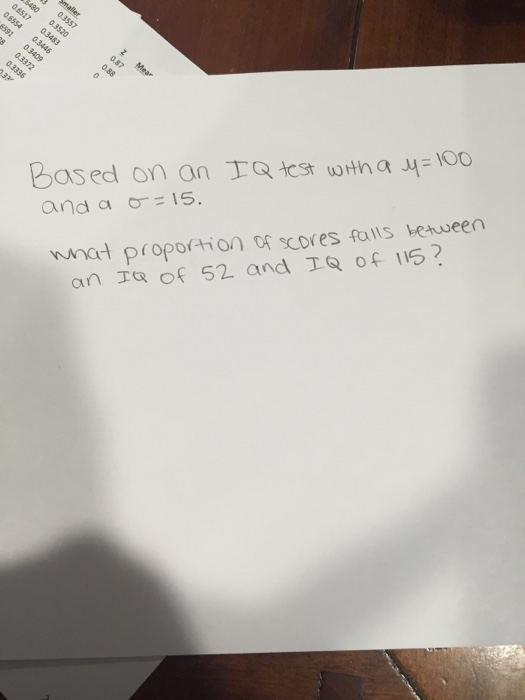 smaller
0.3557
0.6480
0.3520
0.6517
0.3483
0.6554
0.3446
0.3409
0.3372
0.3336
z
Mean
0.87
0.88
Based on an IQ test with a μ=100
and a σ=15.
what proportion of scores falls between
an IQ of 52 and IQ of 115?